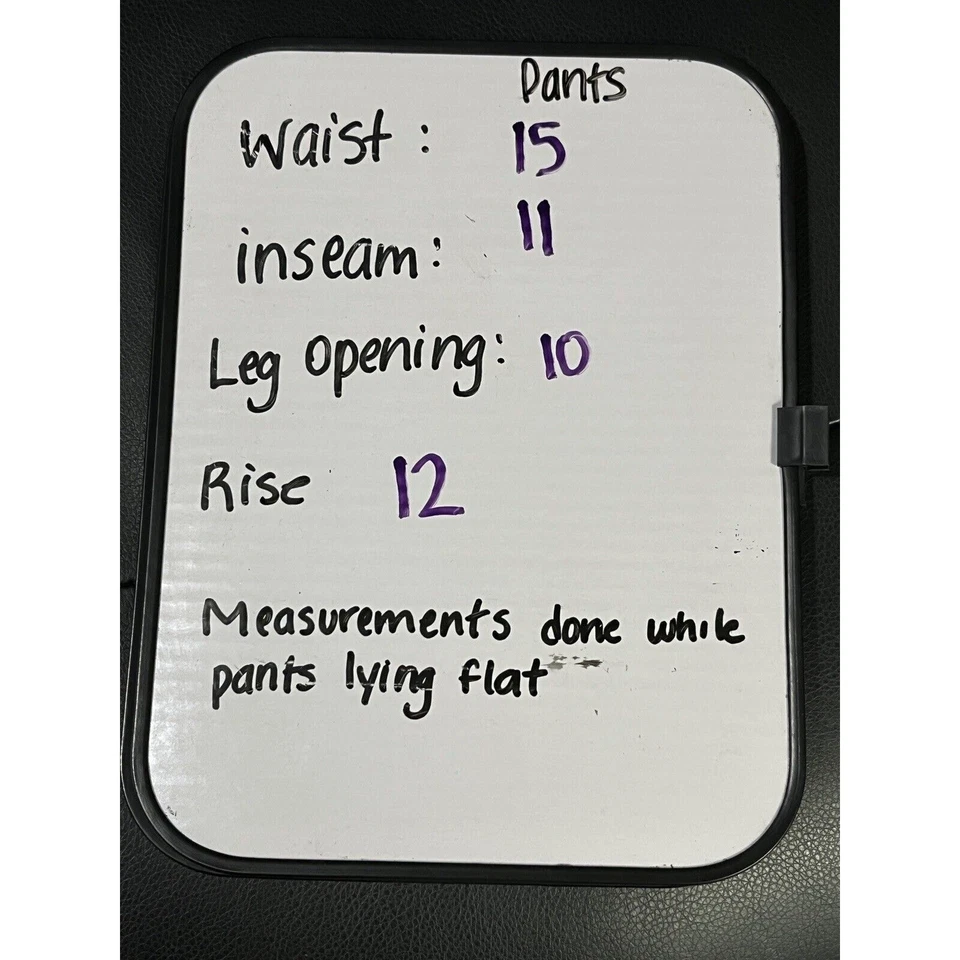 Pants
Waist : 15
inseam: 11
Leg opening: 10
Rise 12
Measurements done while
pants lying flat